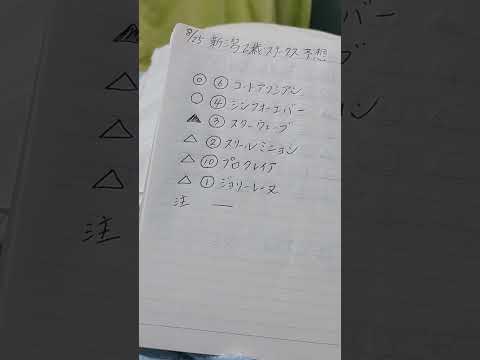 8/25 新潟2歳ステークス予想
◎ ⑥ コートアリシアン
○ ④ シンフォーエバー
▲ ③ スターウェーブ
△ ② スリールミニョン
△ ⑩ プロクレイア
△ ① ジョリーレーヌ
注 ―